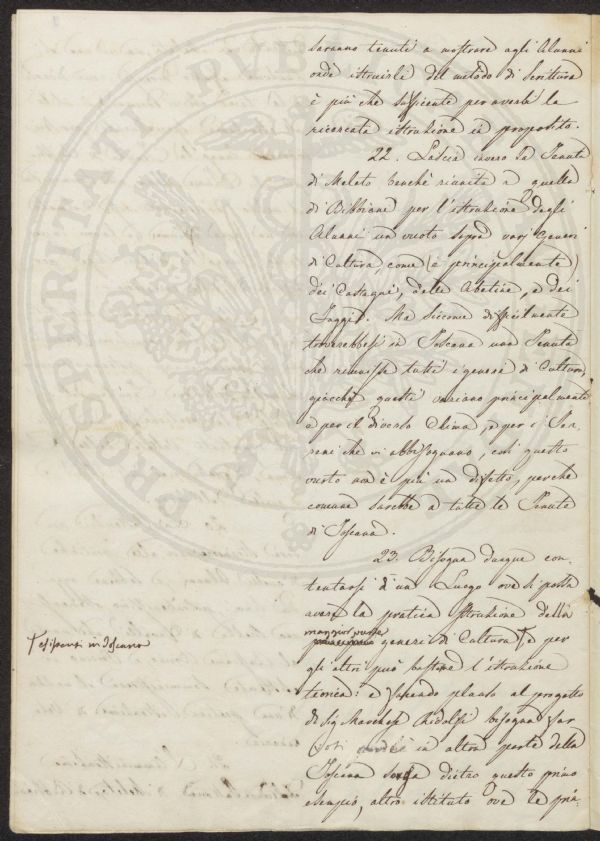 saranno tenuti a mostrare agli Alunni
onde istruirli del metodo di Scrittura
è più che sufficente per averli la
ricercata istruzione in proposito.
22. Lascia invero la Tenuta
di Meleto benchè riunita a quella
di Bibbiano per l'istruzione degli
Alunni un vuoto sopra varj Generi
di Cultura come (e principalmente)
dei Castagni, delle Abetine, e dei
Faggi. Ma siccome difficilmente
troverebbesi in Toscana una Tenuta
che riunisse tutti i generi di Cultura,
giacchè questi variano principalmente
e per il diverso Clima, e per i Ter-
reni che vi abbisognano, così questo
vuoto non è più un difetto, perche
comune sarebbe a tutte le Tenute
di Toscana.
23. Bisogna dunque con-
tentarsi d'un Luogo ove si possa
avere la pratica Istruzione della
maggior parte
generi di Cultura e per
esistenti in Toscana
gli altri può bastare l'istruzione
teorica: e facendo plauso al progetto
di Sig Marchese Ridolfi bisogna far
Voti in altra parte della
Toscana sorga dietro questo primo
esempio, altro istituto ove le pia-
PROSPERITATI PUBL